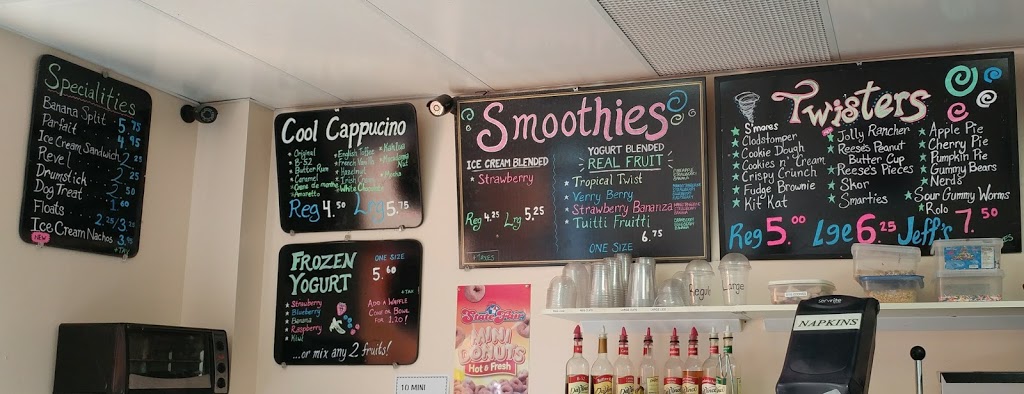 Specialities
Banana Split 5.75
Parfait 4.95
Ice Cream Sandwich 2.25
Revel 2
Drumstick 2.50
Dog Treat 1.60
Floats 2.25/3.25
Ice Cream Nachos 3.95
NEW
Cool Cappucino
Original
B-52
Butter Rum
Caramel
Creme de menthe
Amaretto
English Toffee
French Vanilla
Hazelnut
Irish Cream
White Chocolate
Kahlua
Macadamia
Nut
Mocha
Reg 4.50 Lrg 5.75
FROZEN
YOGURT
ONE SIZE
5.60
+ TAX
Strawberry
Blueberry
Banana
Raspberry
Kiwi
ADD A WAFFLE
CONE OR BOWL
FOR 1.20!
...or mix any 2 fruits!
Smoothies
ICE CREAM BLENDED
Strawberry
Reg 4.25 Lrg 5.25
+ TAXES
YOGURT BLENDED
REAL FRUIT
Tropical Twist
Verry Berry
Strawberry Bananza
Tuitti Fruitti
6.75
ONE SIZE
Twisters
S'mores
Clodstomper
Cookie Dough
Cookies n' Cream
Crispy Crunch
Fudge Brownie
Kit Kat
Jolly Rancher
Reese's Peanut
Butter Cup
Reese's Pieces
Skor
Smarties
Apple Pie
Cherry Pie
Pumpkin Pie
Gummy Bears
Nerds
Sour Gummy Worms
Rolo
Reg 5.00 Lge 6.25 Jeff's 7.50
State Fair
MINI
DONUTS
Hot & Fresh
10 MINI
Regular
Large
servrite
NAPKINS